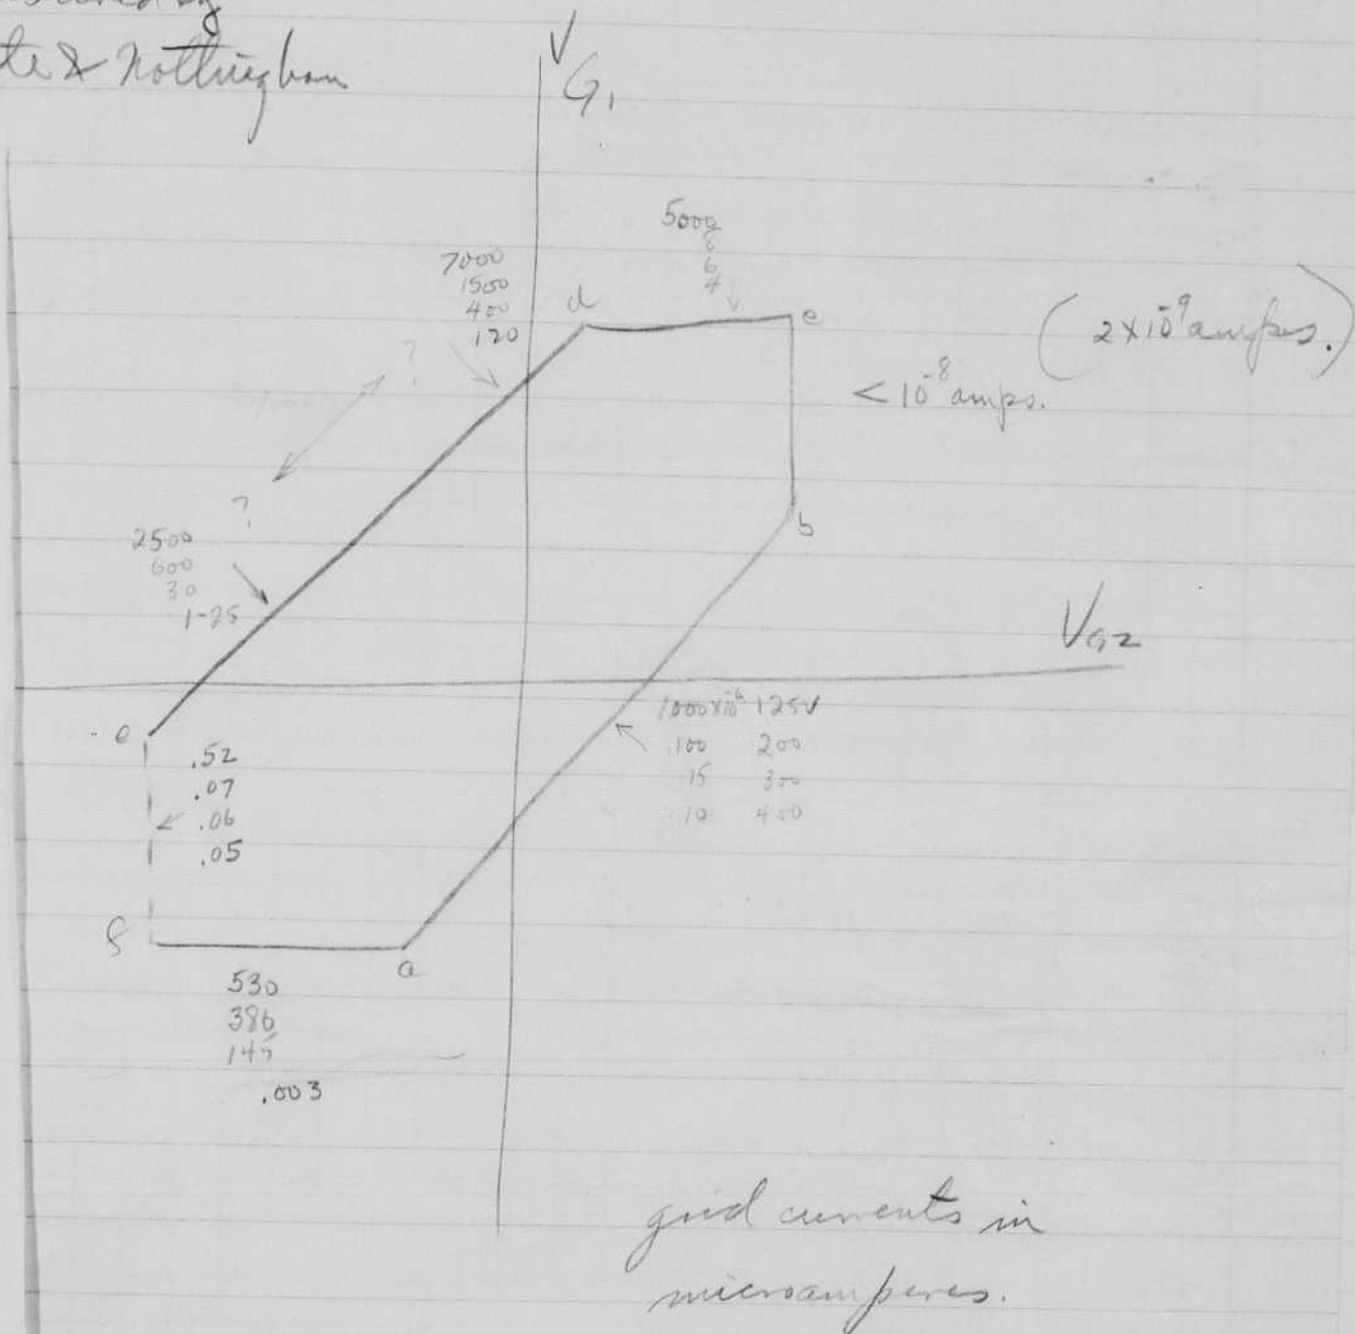 & Nottingham
V
G1
5000
8
6
4
7000
1500
400
120
d
e
(2 x 10^-9 ampes.)
< 10^-8 amps.
?
?
b
2500
600
30
1-25
VG2
1000x10^-6 125V
.100 200
15 300
10 400
.52
.07
.06
.05
a
530
386
145
.003
grid currents in
microamperes.